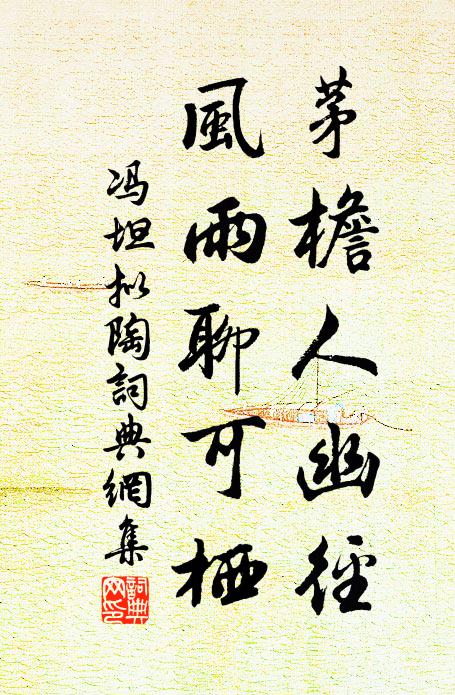 茅檐人幽径
風雨聊可栖
冯坦拟陶詞典網集
詞典网印